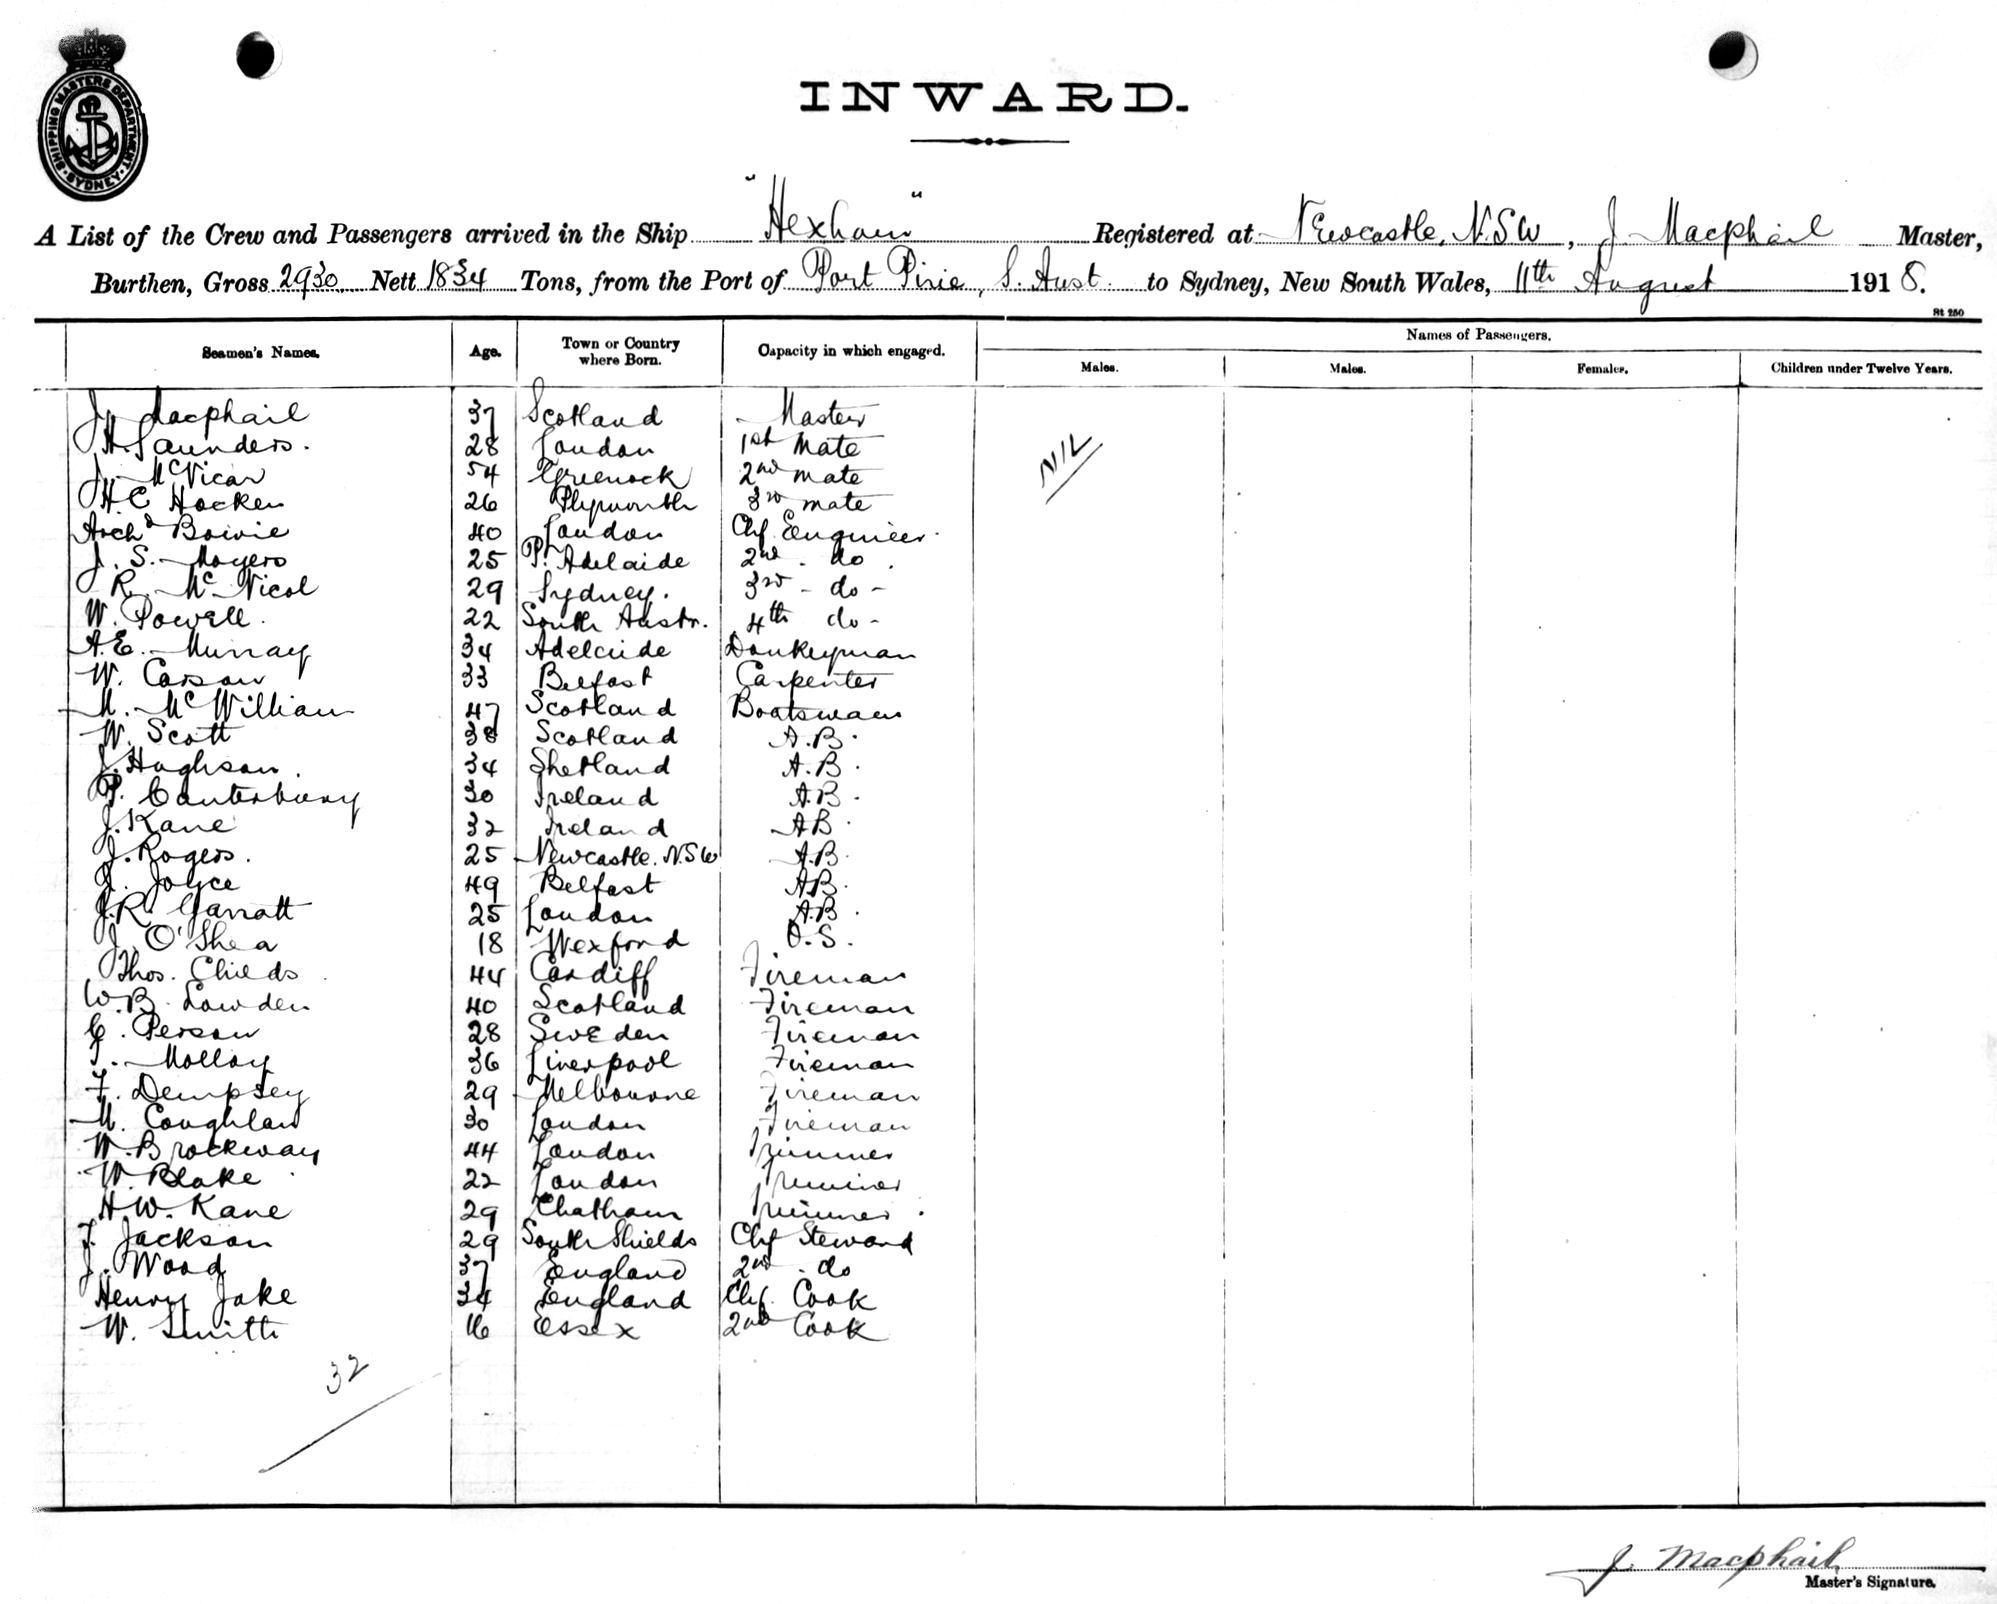 SHIPPING MASTERS DEPARTMENT · SYDNEY ·
INWARD.
A List of the Crew and Passengers arrived in the Ship "Hexham" Registered at Newcastle, N.S.W, J Macphail Master,
Burthen, Gross 2930 Nett 1834 Tons, from the Port of Port Pirie, S. Aust. to Sydney, New South Wales, 11th August 1918.
St 250
Seamen's Names. Age. Town or Country where Born. Capacity in which engaged. Names of Passengers.
Males. Males. Females. Children under Twelve Years.
J. Macphail 37 Scotland Master
H. Saunders. 28 London 1st Mate
J. McVicar 54 Greenock 2nd Mate
NIL
H. C Hocken 26 Plymouth 3rd mate
Archd Bowie 40 London Chf. Engineer.
J. S. Moyers 25 Pt. Adelaide 2nd - do.
R. McNicol 29 Sydney. 3rd - do -
W. Powell. 22 South Austr. 4th do -
A. E. Murray 34 Adelaide Donkeyman
W. Carson 33 Belfast Carpenter
M. McWilliam 47 Scotland Boatswain
W. Scott 38 Scotland A.B.
J. Hughson. 34 Shetland A.B.
P. Canterbury 30 Ireland A.B.
J. Kane 32 Ireland AB.
J. Rogers. 25 Newcastle. N.S.W A.B.
J. Joyce 49 Belfast AB.
J. R. Garratt 25 London A.B.
J. O'Shea 18 Wexford O.S.
Thos. Childs 44 Cardiff Fireman
W. B. Lowden 40 Scotland Fireman
C. Person 28 Sweden Fireman
T. Molloy 36 Liverpool Fireman
F. Dempsey 29 Melbourne Fireman
M. Coughlan 30 London Fireman
W. Brockway 44 London Trimmer
W. Blake 22 London Trimmer
H. W. Kane 29 Chatham Trimmer.
F. Jackson 29 South Shields Chf Steward
J. Wood 37 England 2nd - do
Henry Jake 34 England Chf. Cook
W. Smith 16 Essex 2nd Cook
32
J. Macphail
Master's Signature.